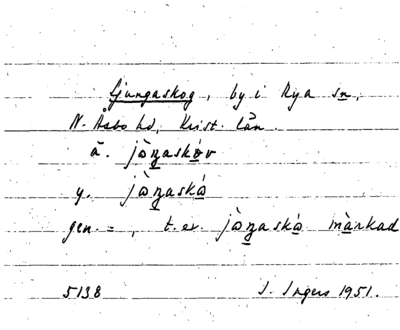 Ljungaskog, by i Rya sn,
N. Åsbo hd, Krist. län.
ä. jòŋaskóv
y. jòŋaskó
gen. = , t.ex. jòŋaskó màrkad
5138 I. Ingers 1951.